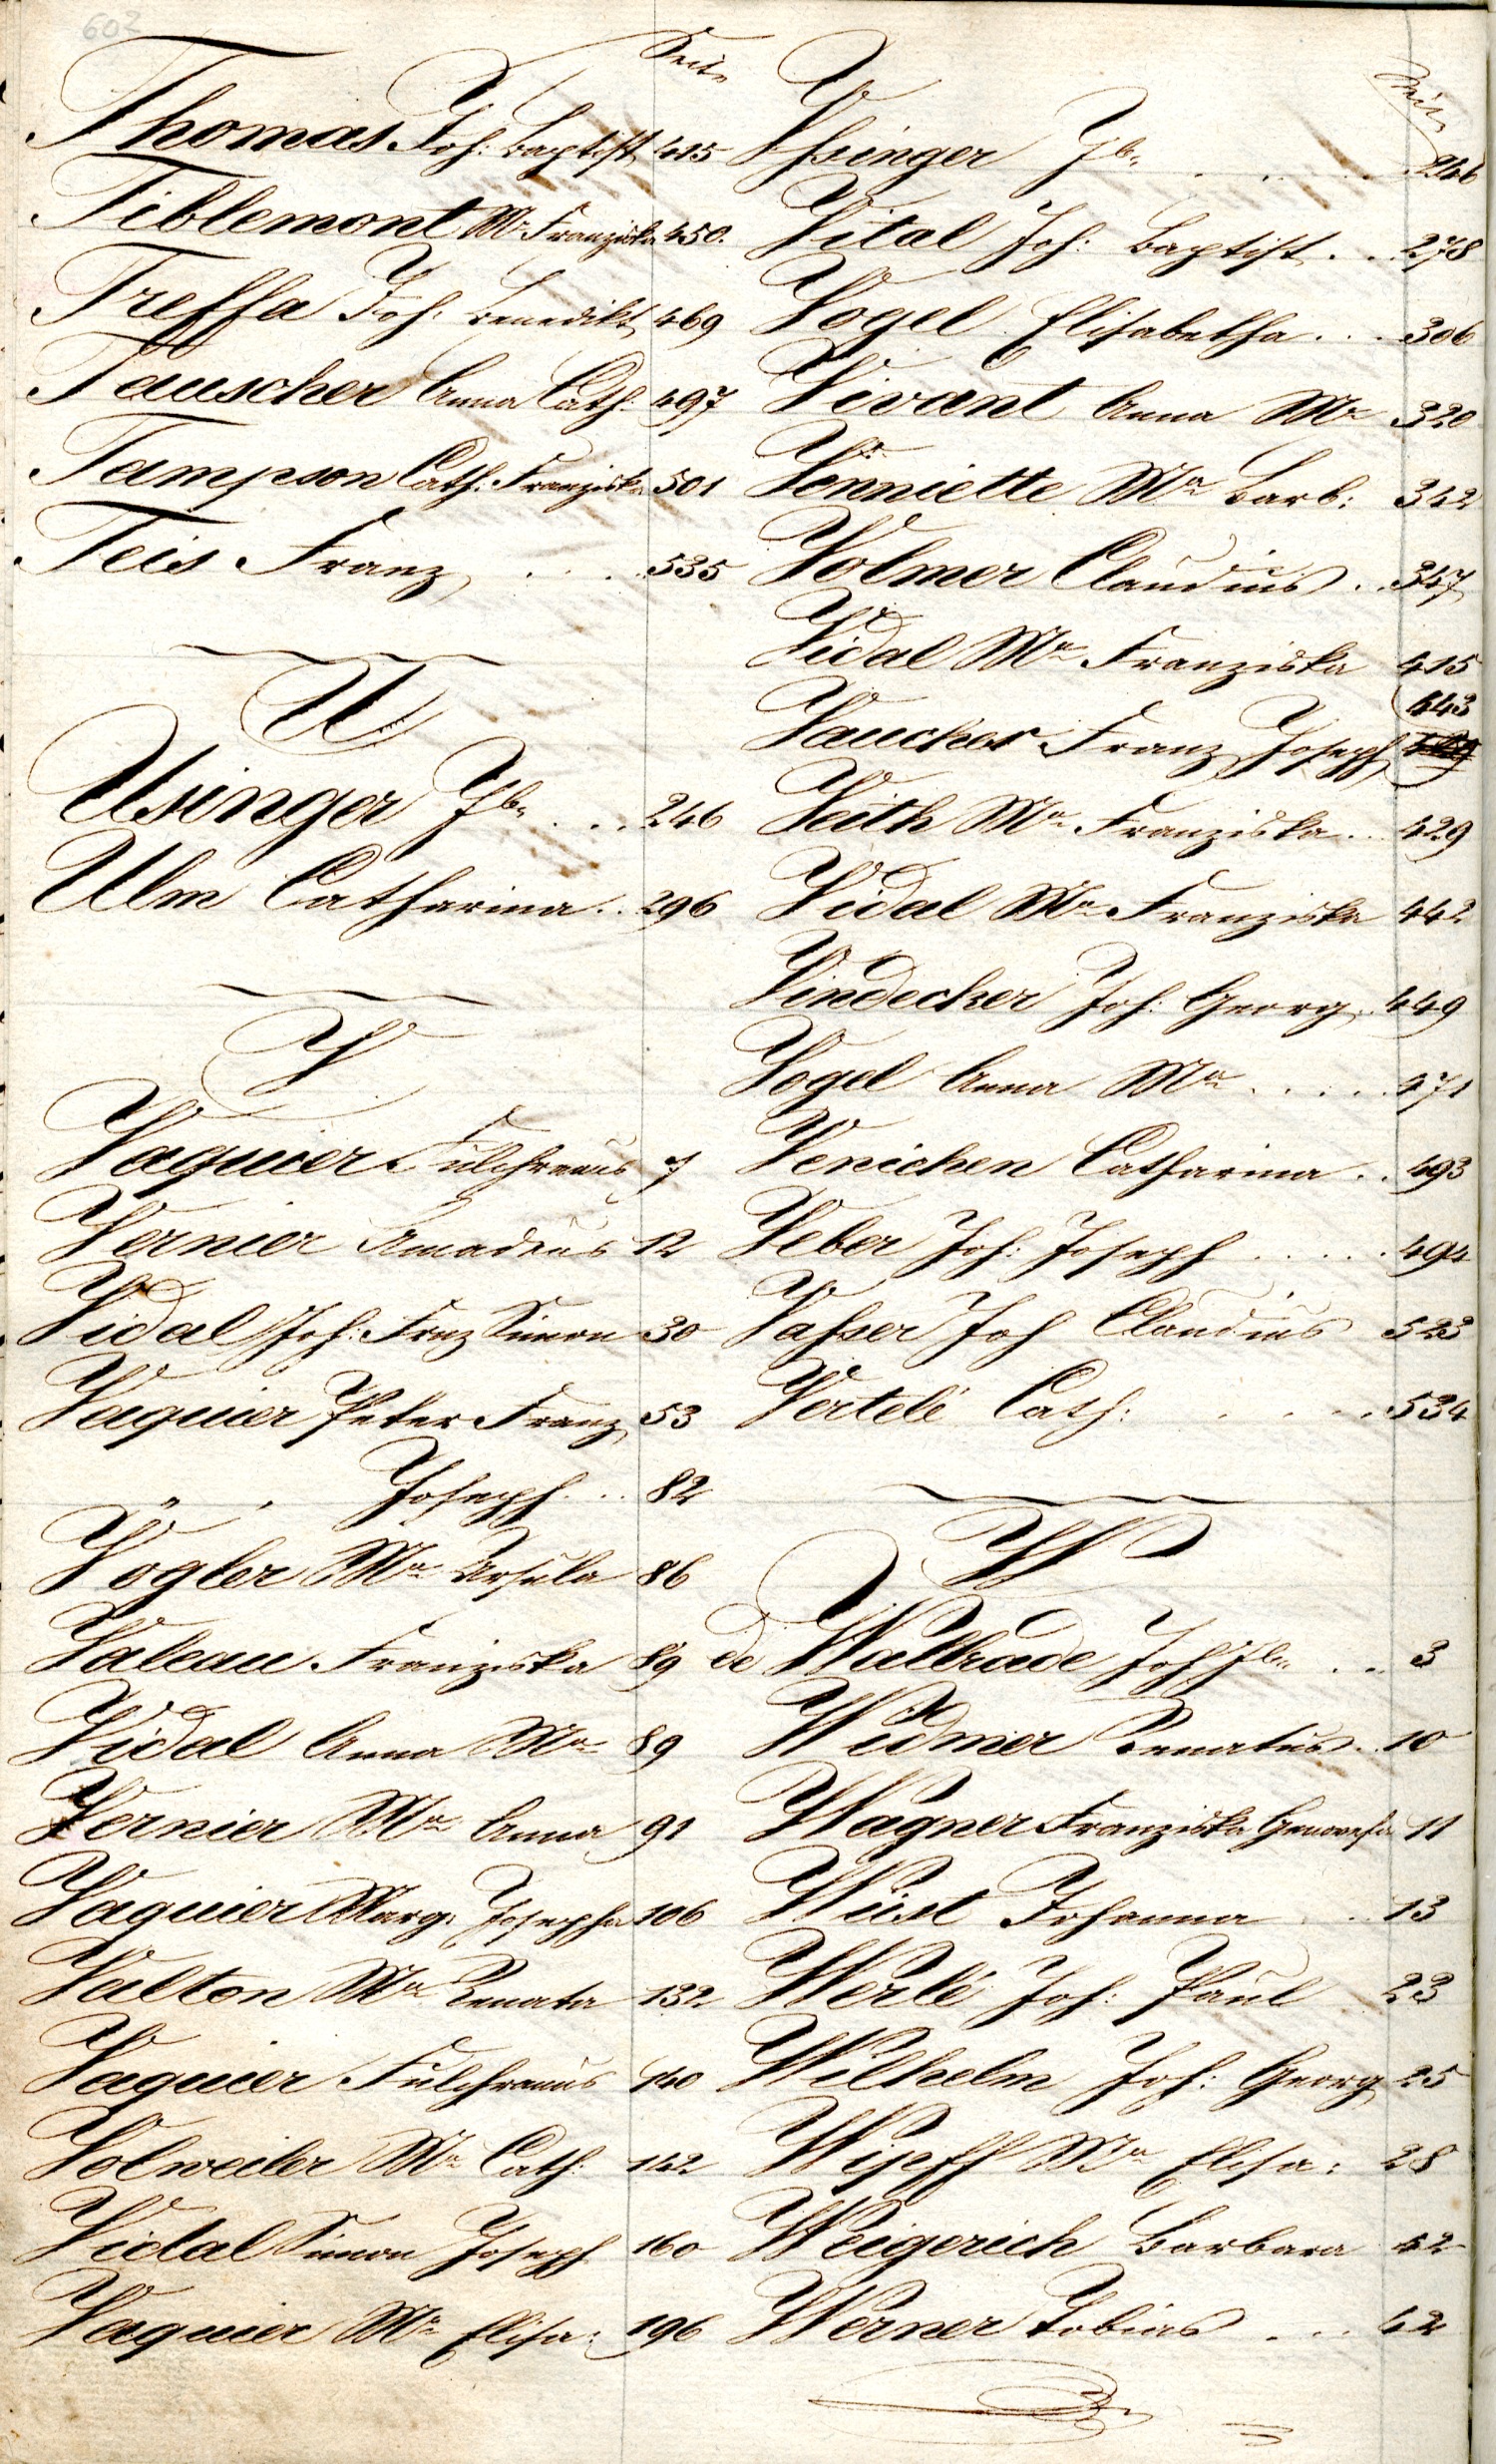 602
Seite
Thomas Joh: Baptist 415
Tiblemont Ma Franziska 450.
Treffa Joh: Benedikt 469
Tauscher Anna Cath: 497
Tampson Cath: Franziska 501
Teis Franz . . . 535
U
Usinger Jb . . . 246
Ulm Catharina . . 296
V
Vaguier Fulchranus 7
Vernier Amadeus 12
Vidal Joh: Frnz Simon 30
Vaguier Peter Franz 53
" " Joseph . . 82
Vogler Ma Ursula 86
Valeau Franziska 89
Vidal Anna Ma 89
Vernier Ma Anna 91
Vaguier Marg: Josepha 106
Valton Ma Renata 132
Vaguier Fulchranus 140
Volweiler Ma Cath: 142
Vidal Simon Joseph 160
Vaguier Ma Elisa: 196
Seite
Vsinger Jb . . . . 246
Vital Joh: Baptist . . 278
Vogel Elisabetha . . . 306
Vivant Anna Ma 320
Venniette Ma Barb: 342
Volmer Claudius . . 347
Vidal Ma Franziska 415
443
Vaucher Franz Joseph
Veith Ma Franziska . . 429
Vidal Ma Franziska 442
Vindecker Joh: Georg . 449
Vogel Anna Ma . . . . 471
Venichen Catharina . . 493
Veber Joh: Joseph . . . . 494
Vaßer Joh Claudius 523
Vertelé Cath: . . . . 534
W
de Wallrade Joh Jb . . . 3
Widmer Renatus . . 10
Wagner Franziska Genovefa 11
Wüst Johanna . . 13
Werlé Joh: Paul 23
Wilhelm Joh: Georg 25
Wipff Ma Elisa: 28
Weigerich Barbara 42
Werner Tobias . . . 42